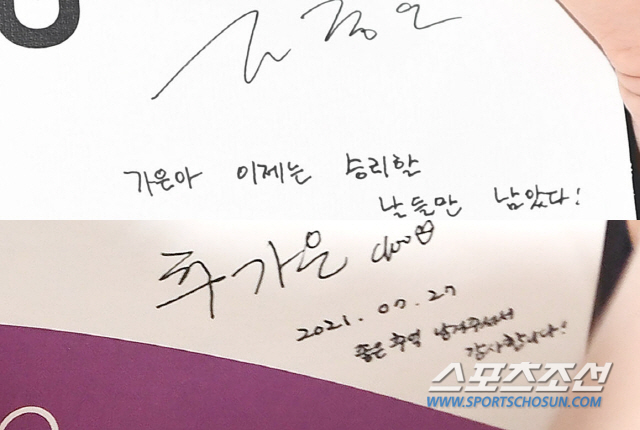 가은아 이제는 승리할
날들만 남았다!
추가은 choo
2021. 07. 27
좋은 추억 남겨주셔서
감사합니다!
스포츠조선
WWW.SPORTSCHOSUN.COM